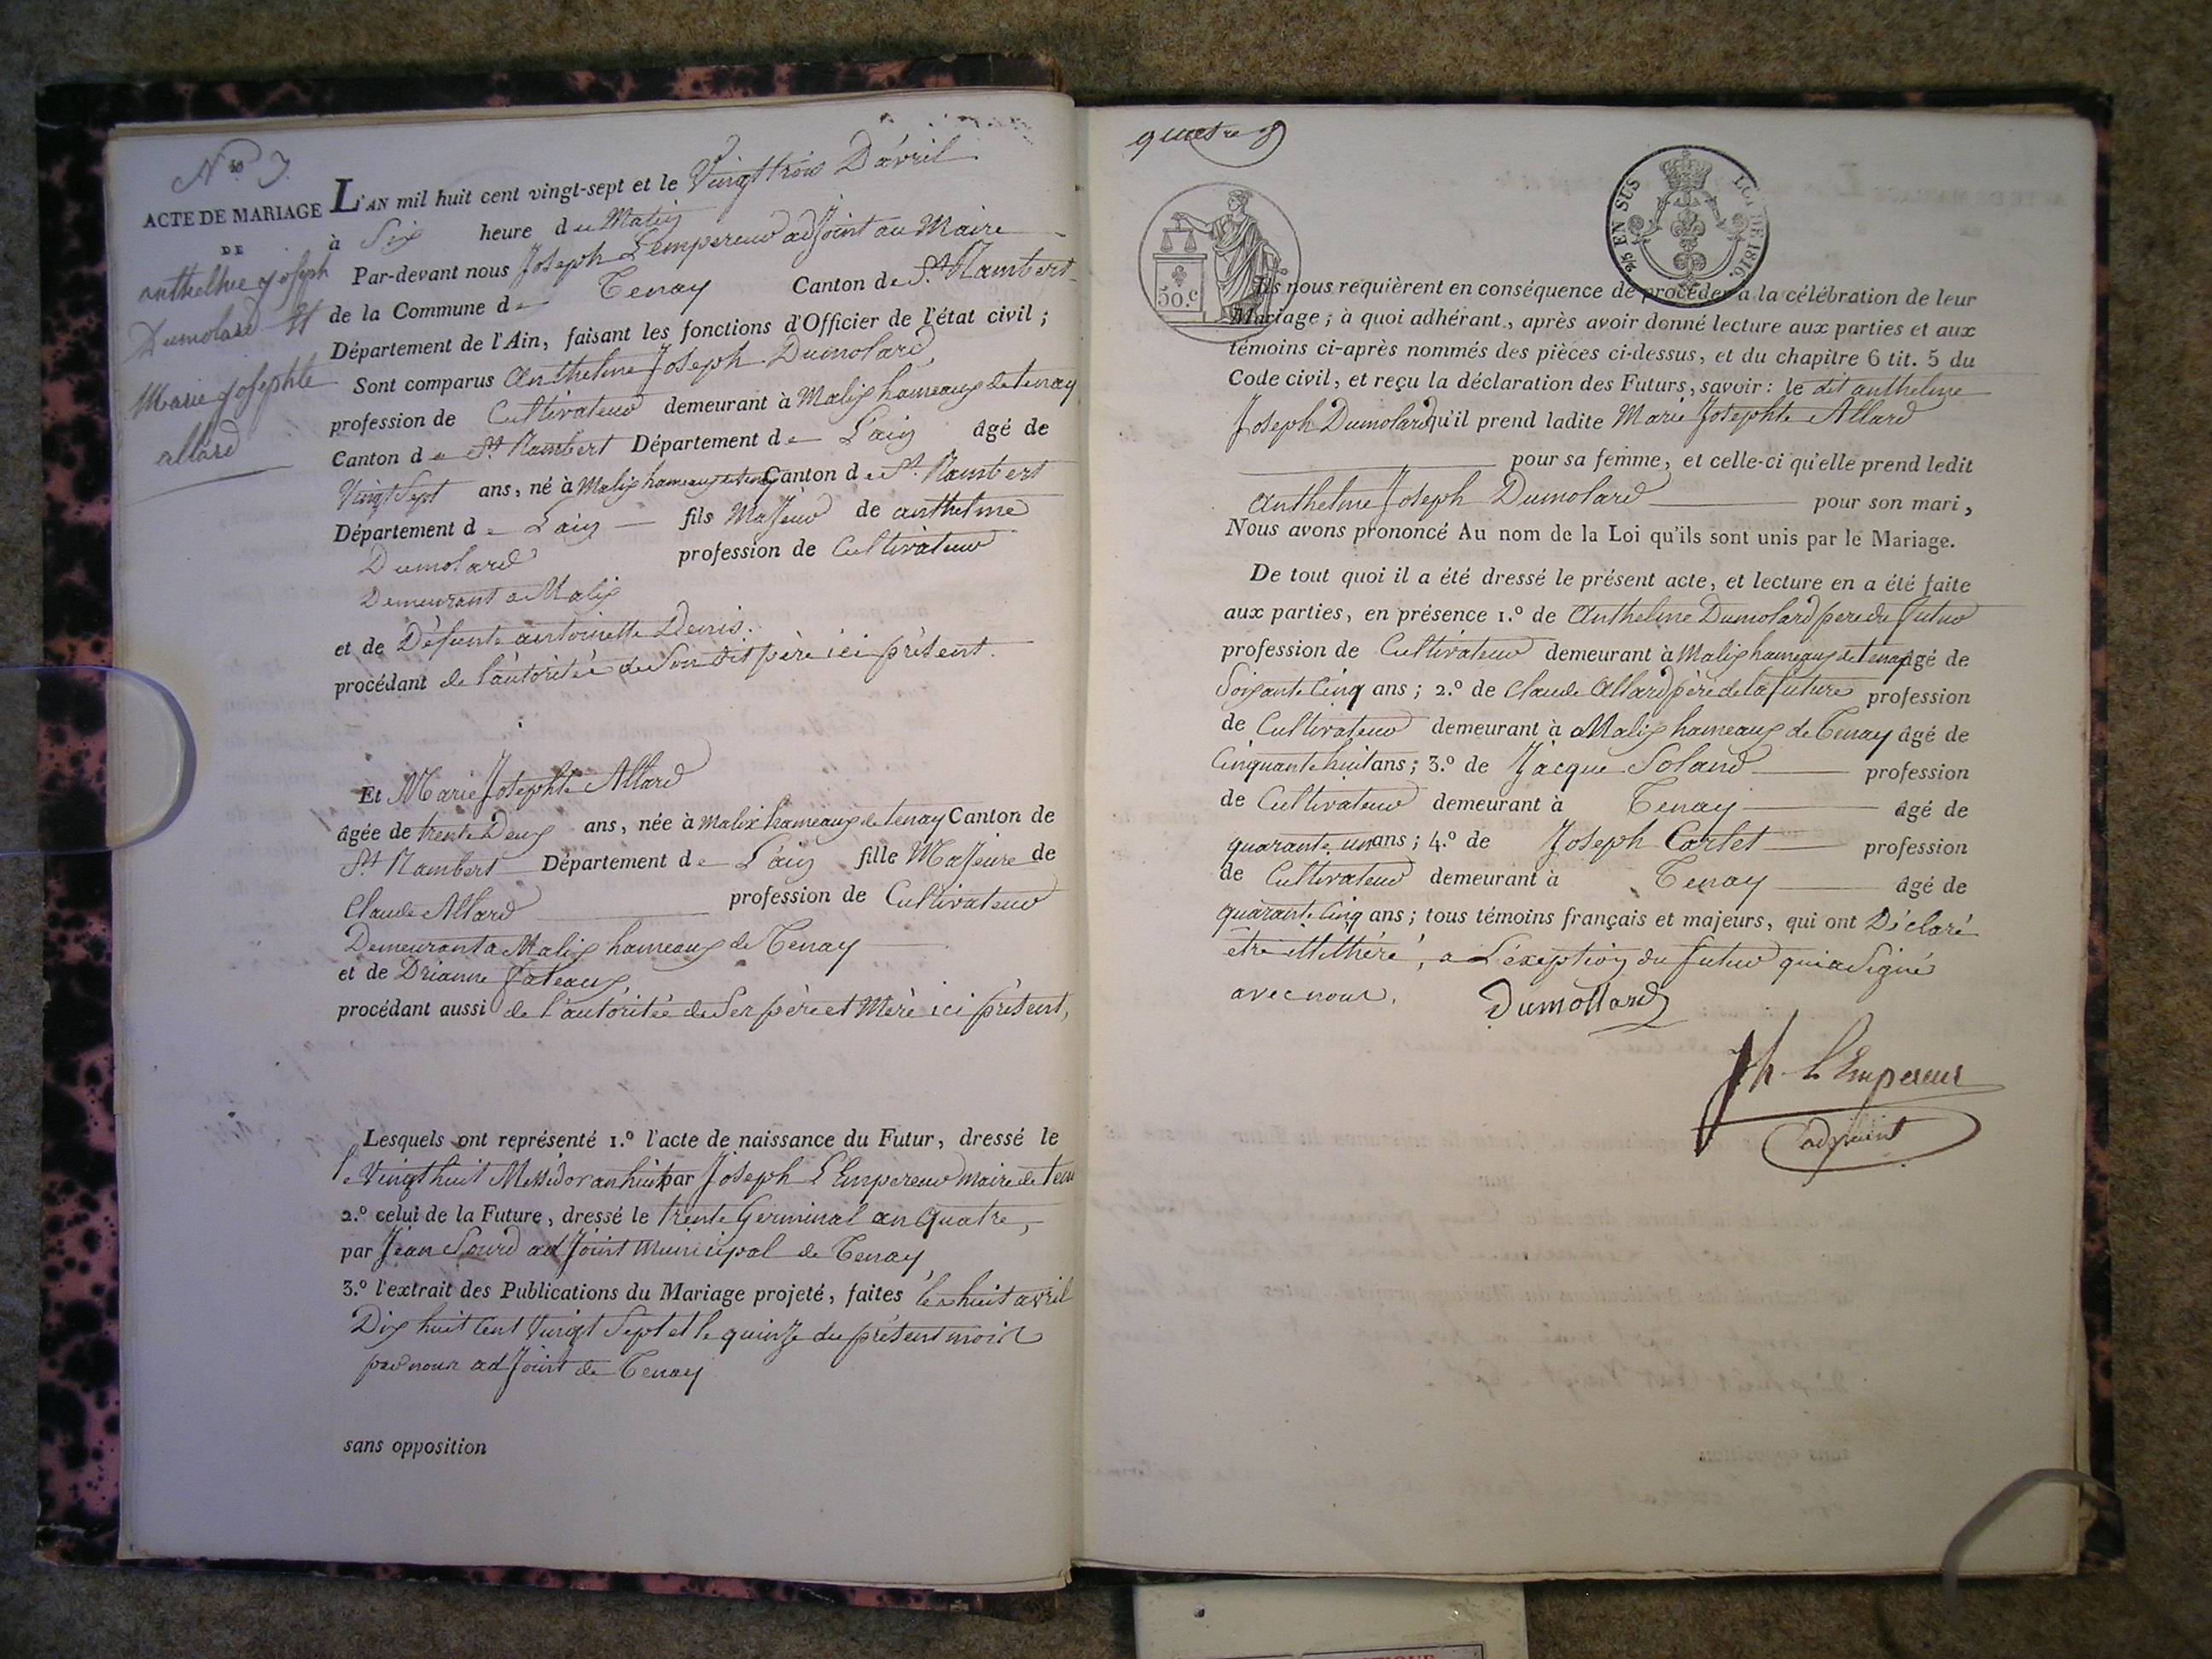 ACTE DE MARIAGE
DE
anthelme joseph
Dumolard et
Marie josephte
allard
L'AN mil huit cent vingt-sept et le Vingt trois D'avril
à Six heure du Matin
Par-devant nous Joseph Lempereur adjoint au Maire
de la Commune de Tenay Canton de St. Rambert
Département de l'Ain, faisant les fonctions d'Officier de l'état civil ;
Sont comparus Anthelme Joseph Dumolard
profession de Cultivateur demeurant à Malix hameaux de tenay
Canton de St. Rambert Département de L'ain âgé de
Vingt Sept ans, né à Malix hameaux de tenay Canton de St. Rambert
Département de L'ain fils Majeur de anthelme
Dumolard profession de Cultivateur
Demeurant a Malix
et de Défunte antoinette Denis.
procédant de l'autoritée de Son dit père ici présent.
Et Marie Josephte Allard
âgée de trente Deux ans, née à Malix hameaux de tenay Canton de
St. Rambert Département de L'ain fille Majeure de
Claude Allard profession de Cultivateur
Demeurant a Malix hameaux de Tenay
et de Drianne
procédant aussi de l'autoritée de Ses père et Mère ici présent,
Lesquels ont représenté 1.º l'acte de naissance du Futur, dressé le
le Vingt huit Messidor an huit par Joseph L'Empereur maire de
2.º celui de la Future, dressé le trente Germinal an Quatre,
par Jean Sourd adjoint Municipal de Tenay
3.º l'extrait des Publications du Mariage projeté, faites le huit avril
Dix huit Cent Vingt Sept et le quinze du présent mois
par nous adjoint de Tenay
sans opposition
quatre
2/5 EN SUS LOI DE 1816.
50.c
Ils nous requièrent en conséquence de procéder à la célébration de leur
Mariage ; à quoi adhérant, après avoir donné lecture aux parties et aux
témoins ci-après nommés des pièces ci-dessus, et du chapitre 6 tit. 5 du
Code civil, et reçu la déclaration des Futurs, savoir : le dit anthelme
Joseph Dumolard qu'il prend ladite Marie Josephte Allard
pour sa femme, et celle-ci qu'elle prend ledit
Anthelme Joseph Dumolard pour son mari,
Nous avons prononcé Au nom de la Loi qu'ils sont unis par le Mariage.
De tout quoi il a été dressé le présent acte, et lecture en a été faite
aux parties, en présence 1.º de Anthelme Dumolard pere du futur
profession de Cultivateur demeurant à Malix hameaux de tenay âgé de
Soixante Cinq ans ; 2.º de Claude Allard père de la future profession
de Cultivateur demeurant à Malix hameaux de Tenay âgé de
Cinquante huit ans ; 3.º de Jacque Soland profession
de Cultivateur demeurant à Tenay âgé de
quarante un ans ; 4.º de Joseph Carlet profession
de Cultivateur demeurant à Tenay âgé de
quarante Cinq ans ; tous témoins français et majeurs, qui ont Déclaré
être , a L'exeption du futur qui a Signé
avec nous.
Dumollard
Jh. L'Empereur
adjoint